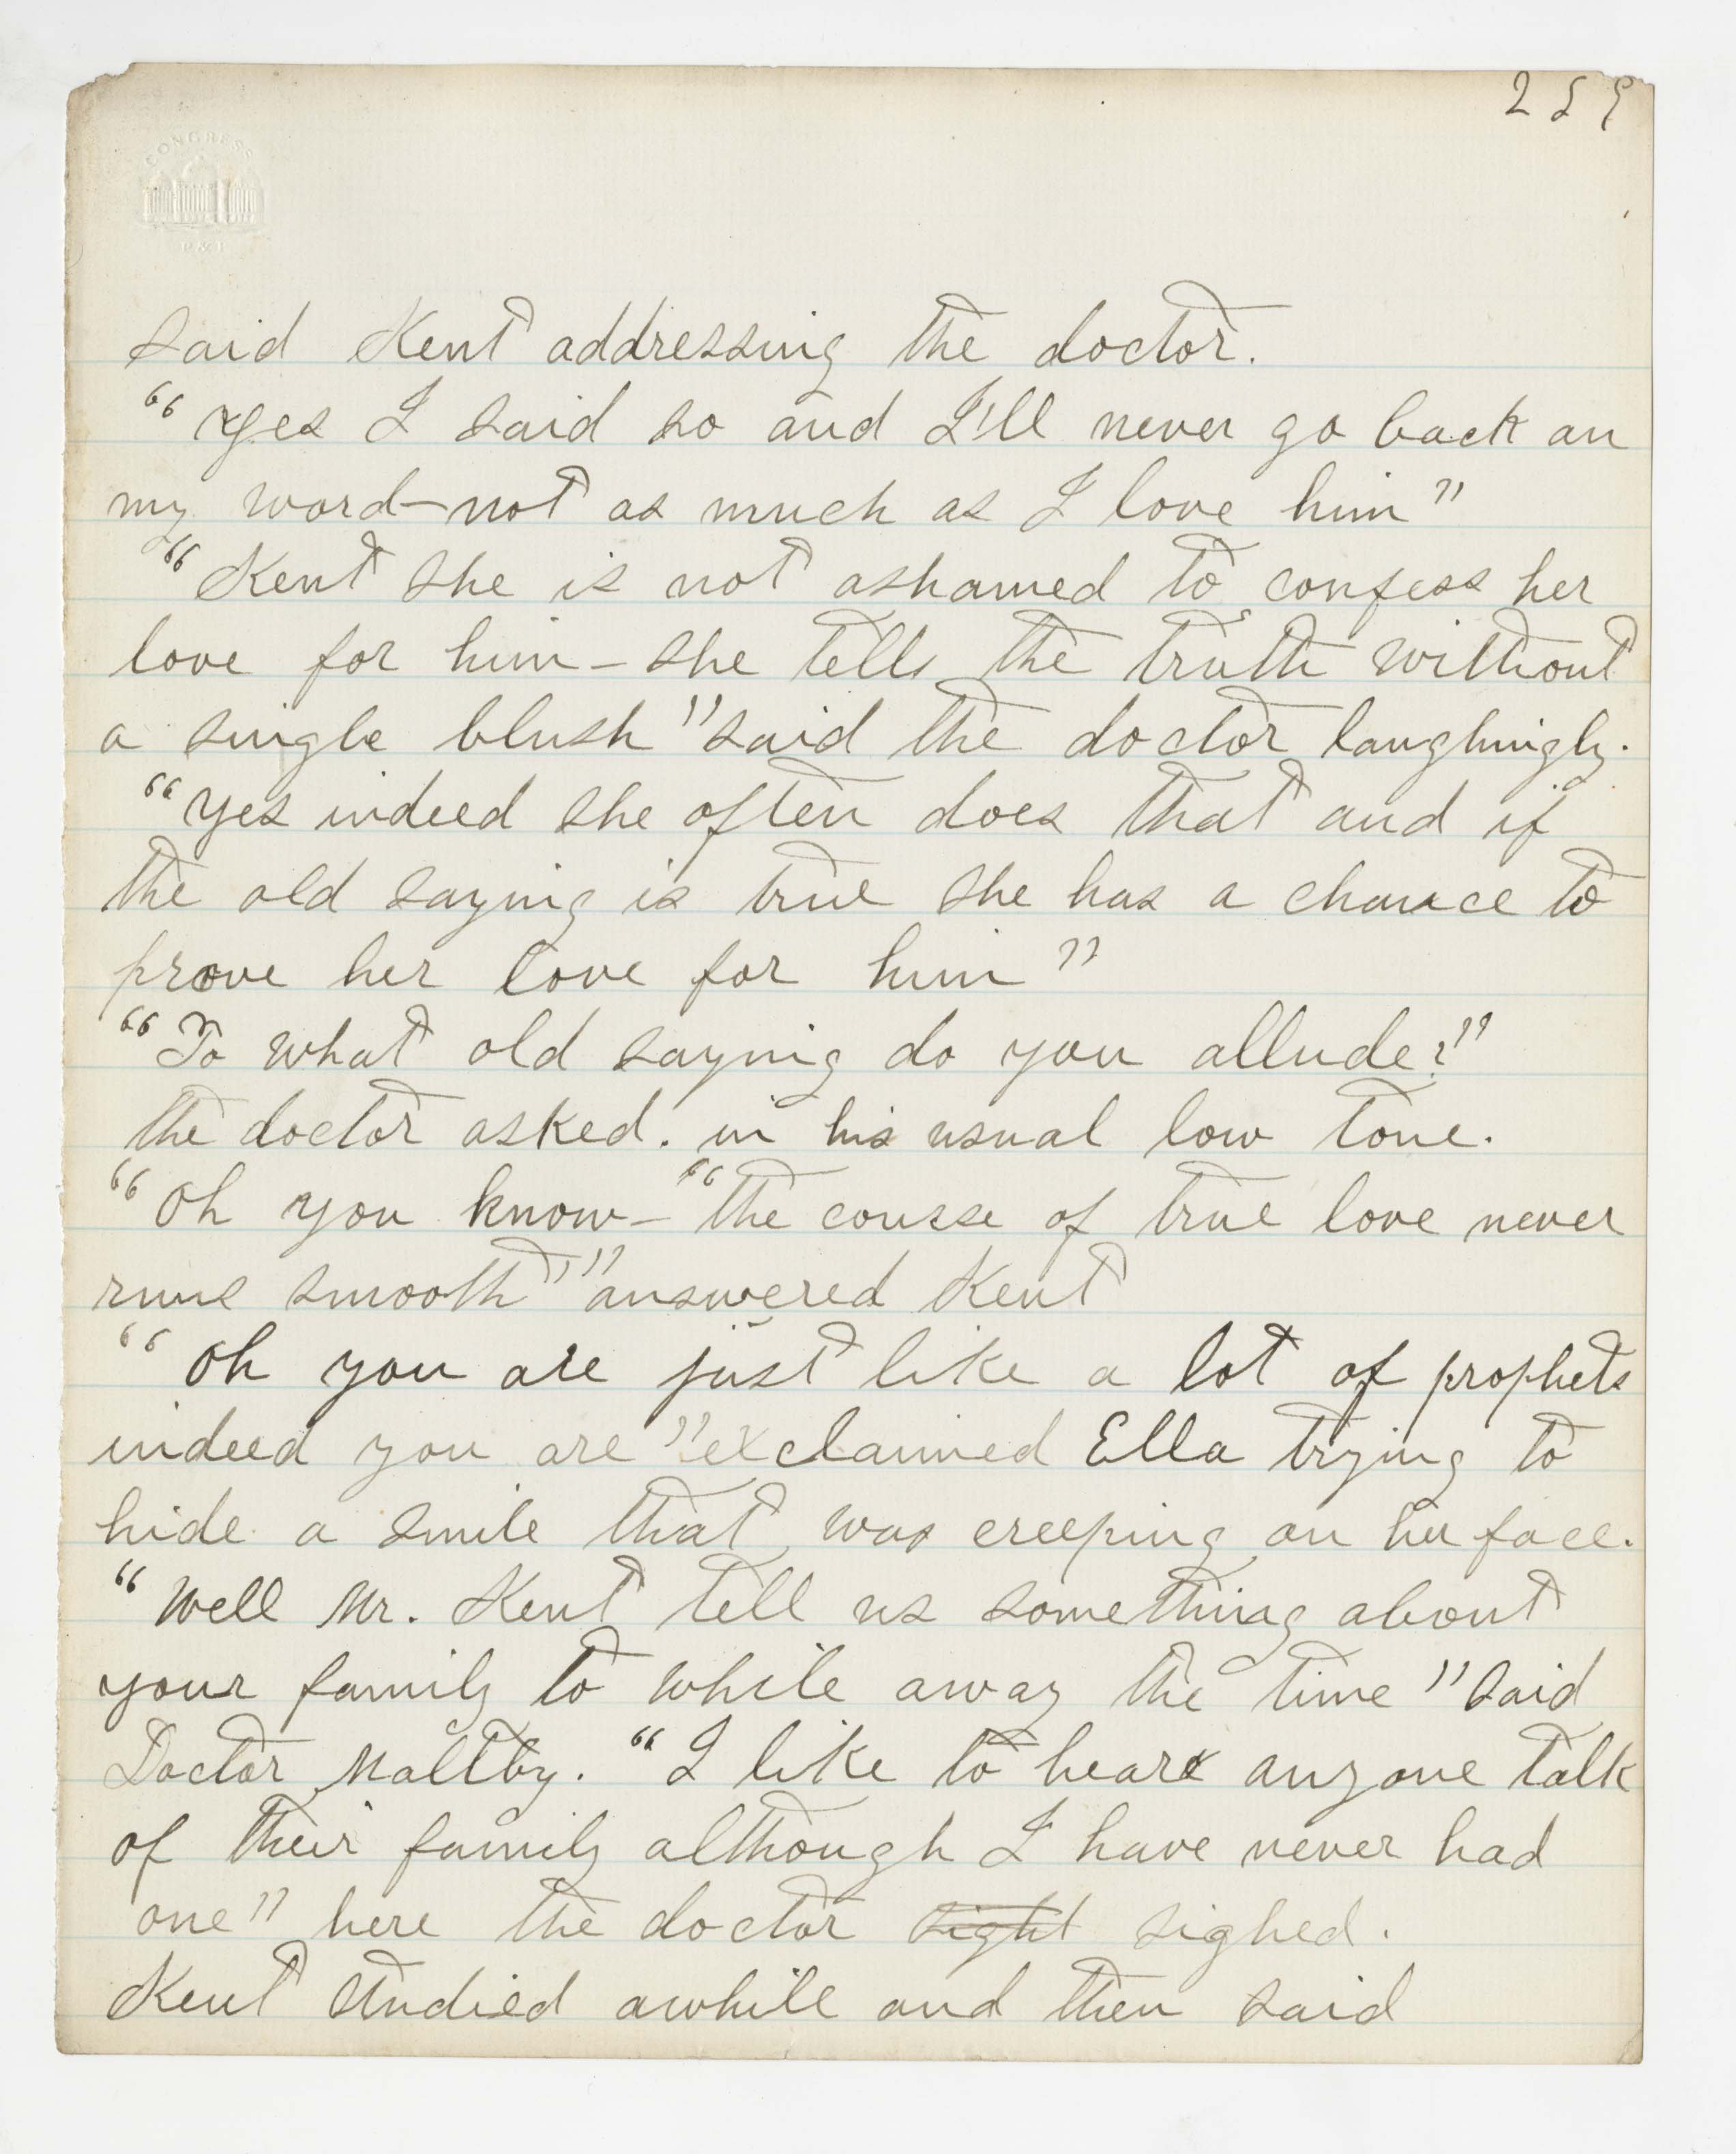 259
CONGRESS
P & P
said Kent addressing the doctor.
“Yes I said so and I'll never go back on
my word—not as much as I love him”
“Kent she is not ashamed to confess her
love for him—she tells the truth without
a single blush” said the doctor laughingly.
“Yes indeed she often does that and if
the old saying is true she has a chance to
prove her love for him”
“To what old saying do you allude?”
the doctor asked. in his usual low tone.
“Oh you know—“the course of true love never
runs smooth”” answered Kent
“Oh you are just like a lot of prophets
indeed you are” exclaimed Ella trying to
hide a smile that was creeping on her face.
“Well Mr. Kent tell us something about
your family to while away the time” said
Doctor Maltby. “I like to hear anyone talk
of their family although I have never had
one” here the doctor sight sighed.
Kent studied awhile and then said